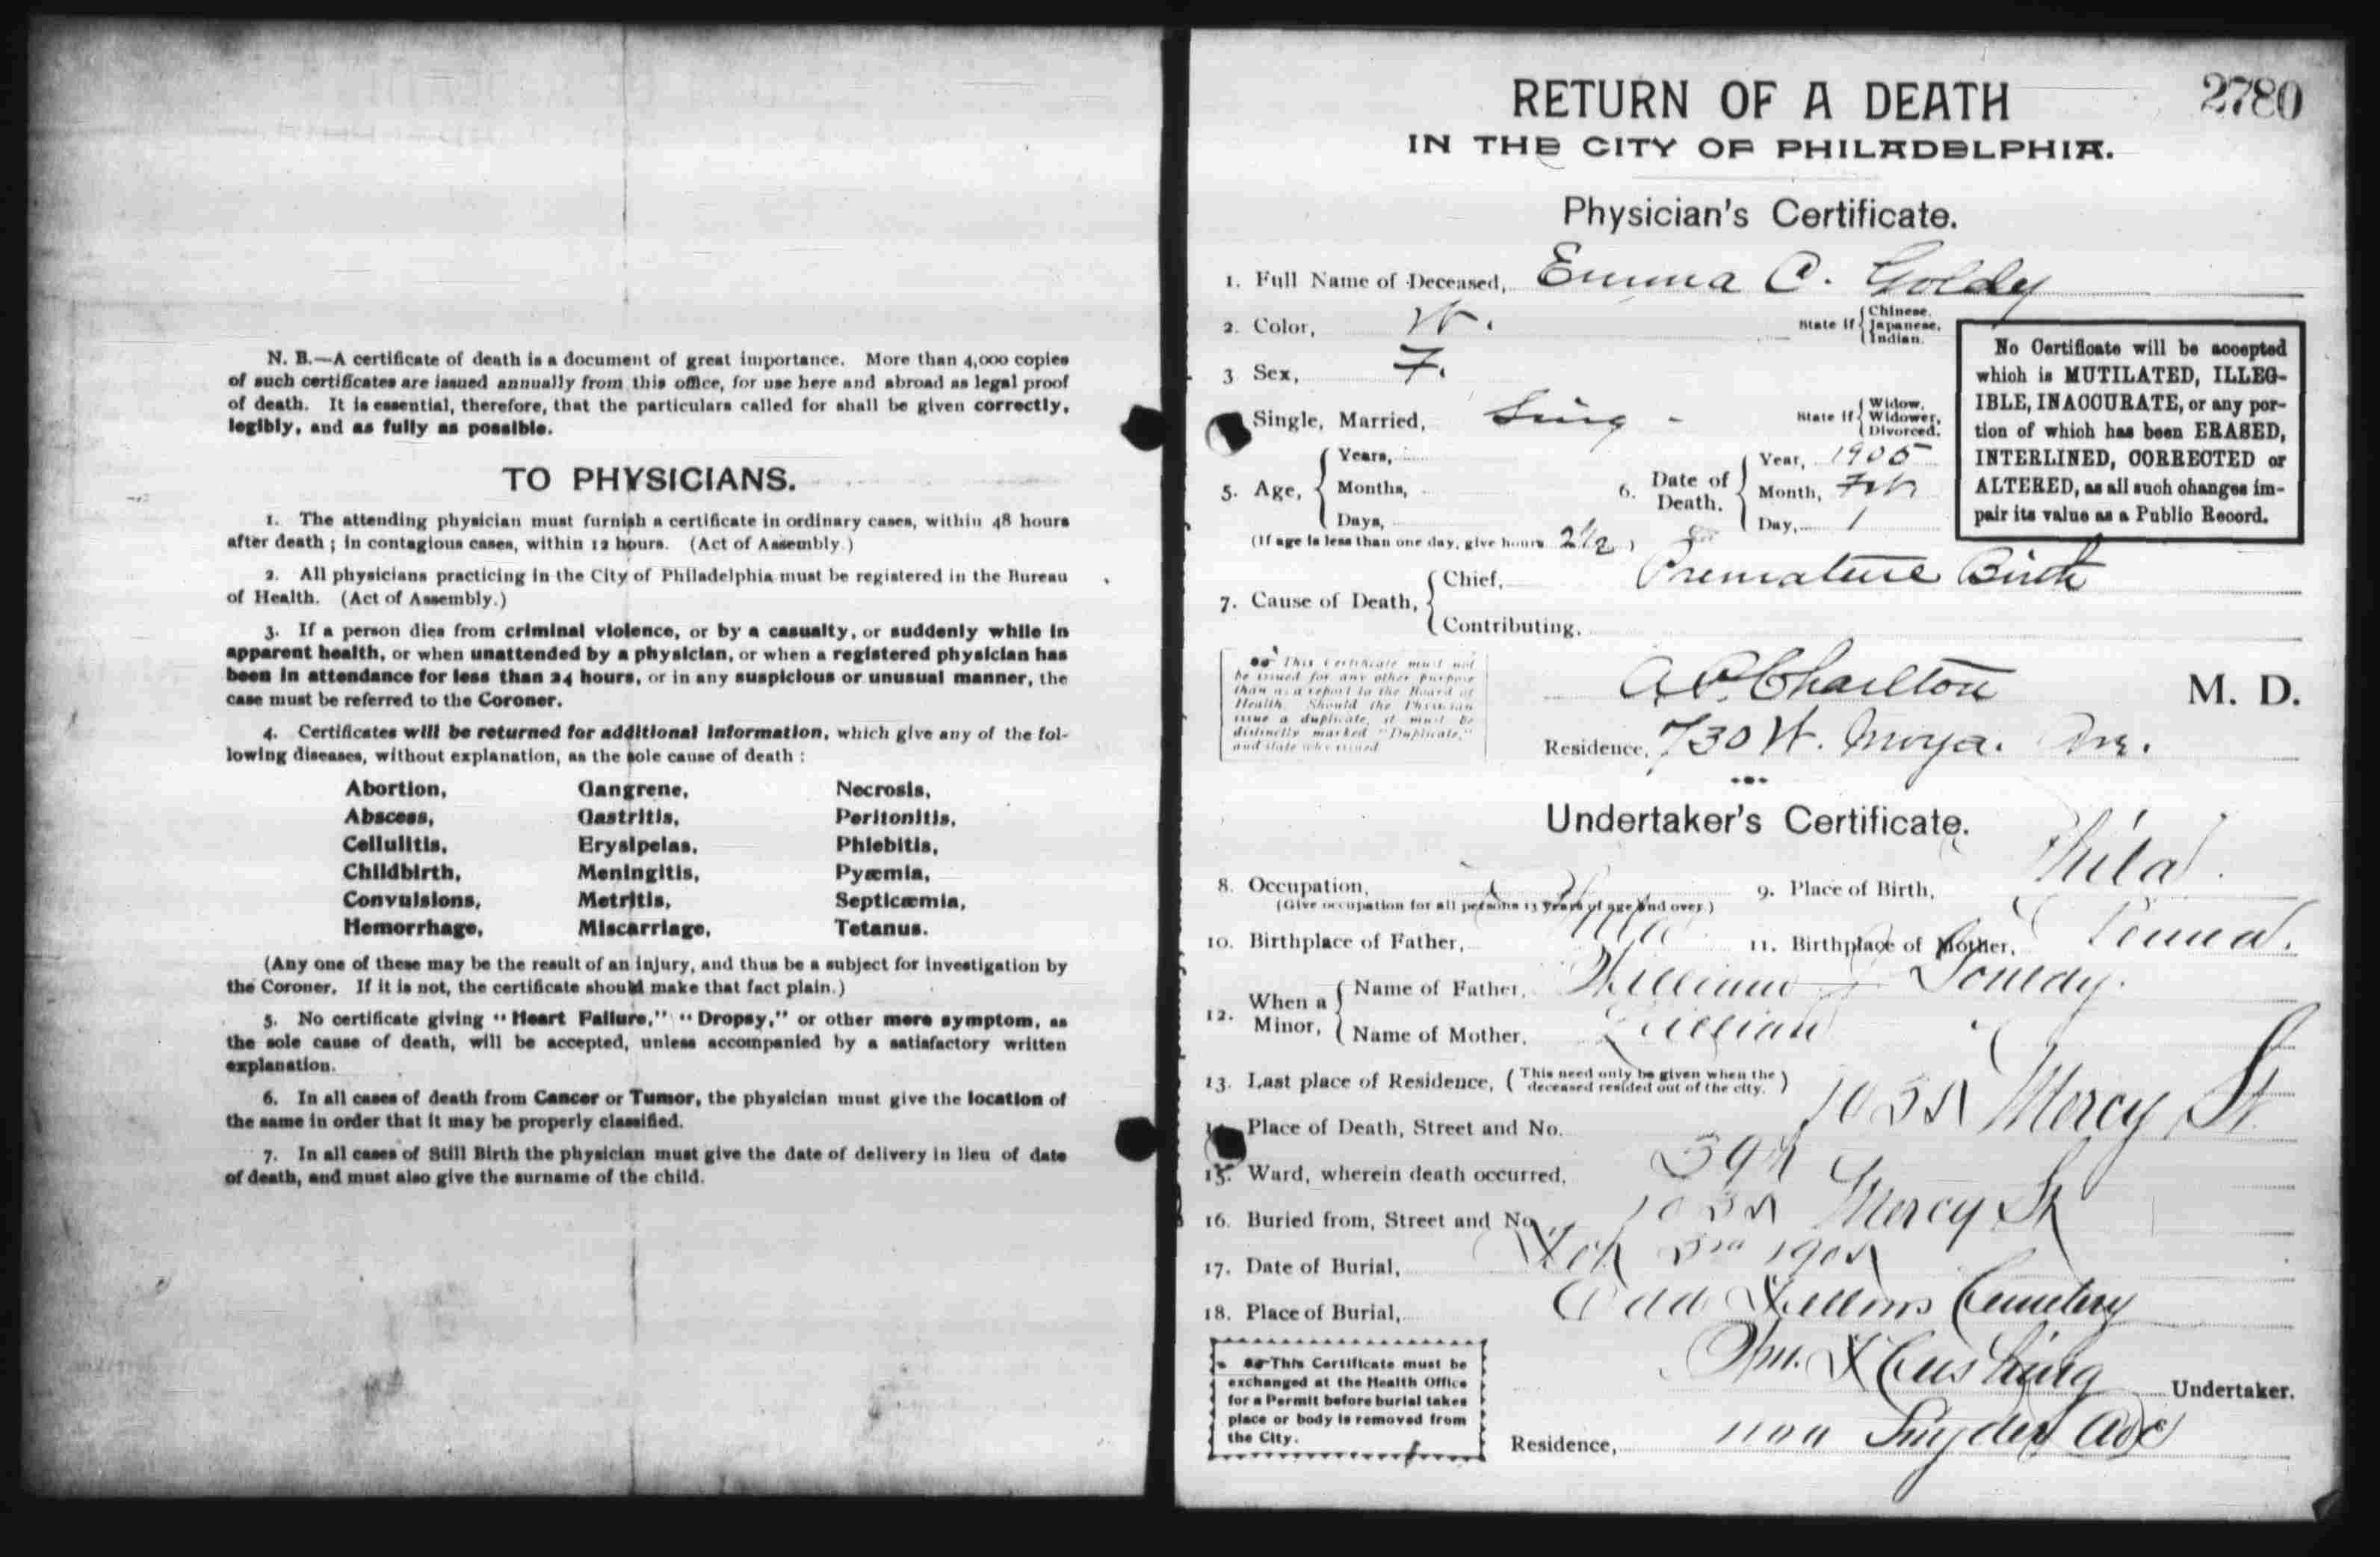 N. B.—A certificate of death is a document of great importance. More than 4,000 copies
of such certificates are issued annually from this office, for use here and abroad as legal proof
of death. It is essential, therefore, that the particulars called for shall be given correctly,
legibly, and as fully as possible.
TO PHYSICIANS.
1. The attending physician must furnish a certificate in ordinary cases, within 48 hours
after death; in contagious cases, within 12 hours. (Act of Assembly.)
2. All physicians practicing in the City of Philadelphia must be registered in the Bureau
of Health. (Act of Assembly.)
3. If a person dies from criminal violence, or by a casualty, or suddenly while in
apparent health, or when unattended by a physician, or when a registered physician has
been in attendance for less than 24 hours, or in any suspicious or unusual manner, the
case must be referred to the Coroner.
4. Certificates will be returned for additional information, which give any of the fol-
lowing diseases, without explanation, as the sole cause of death:
Abortion, Gangrene, Necrosis,
Abscess, Gastritis, Peritonitis,
Cellulitis, Erysipelas, Phlebitis,
Childbirth, Meningitis, Pyæmia,
Convulsions, Metritis, Septicæmia,
Hemorrhage, Miscarriage, Tetanus.
(Any one of these may be the result of an injury, and thus be a subject for investigation by
the Coroner. If it is not, the certificate should make that fact plain.)
5. No certificate giving "Heart Failure," "Dropsy," or other mere symptom, as
the sole cause of death, will be accepted, unless accompanied by a satisfactory written
explanation.
6. In all cases of death from Cancer or Tumor, the physician must give the location of
the same in order that it may be properly classified.
7. In all cases of Still Birth the physician must give the date of delivery in lieu of date
of death, and must also give the surname of the child.
2780
RETURN OF A DEATH
IN THE CITY OF PHILADELPHIA.
Physician's Certificate.
1. Full Name of Deceased, Emma C. Goldy
2. Color, W. State if Chinese. Japanese. Indian.
3 Sex, F.
Single, Married, Sing - State if Widow, Widower, Divorced.
5. Age, Years, Months, Days,
(If age is less than one day, give hours 2½)
6. Date of Death. Year, 1905 Month, Feb Day, 1
No Certificate will be accepted
which is MUTILATED, ILLEG-
IBLE, INACCURATE, or any por-
tion of which has been ERASED,
INTERLINED, CORRECTED or
ALTERED, as all such changes im-
pair its value as a Public Record.
7. Cause of Death, Chief, Premature Birth
Contributing,
This Certificate must not
be issued for any other purpose
than as a report to the Board of
Health. Should the Physician
issue a duplicate, it must be
distinctly marked "Duplicate,"
and state why issued
A. P. Charlton M. D.
Residence, 730 W. Moya. Ave.
Undertaker's Certificate.
8. Occupation,
(Give occupation for all persons 15 years of age and over.)
9. Place of Birth, Phila.
10. Birthplace of Father, Phila
11. Birthplace of Mother, Penna.
12. When a Minor, Name of Father, William Gouldy.
Name of Mother, Lillian
13. Last place of Residence, (This need only be given when the deceased resided out of the city.)
Place of Death, Street and No. 1035 Mercy St
15. Ward, wherein death occurred, 39th
16. Buried from, Street and No. 1035 Mercy St
17. Date of Burial, Feb 3rd 1905
18. Place of Burial, Odd Fellows Cemetery
This Certificate must be
exchanged at the Health Office
for a Permit before burial takes
place or body is removed from
the City.
Wm. H Cushing Undertaker.
Residence, Snyder Ave